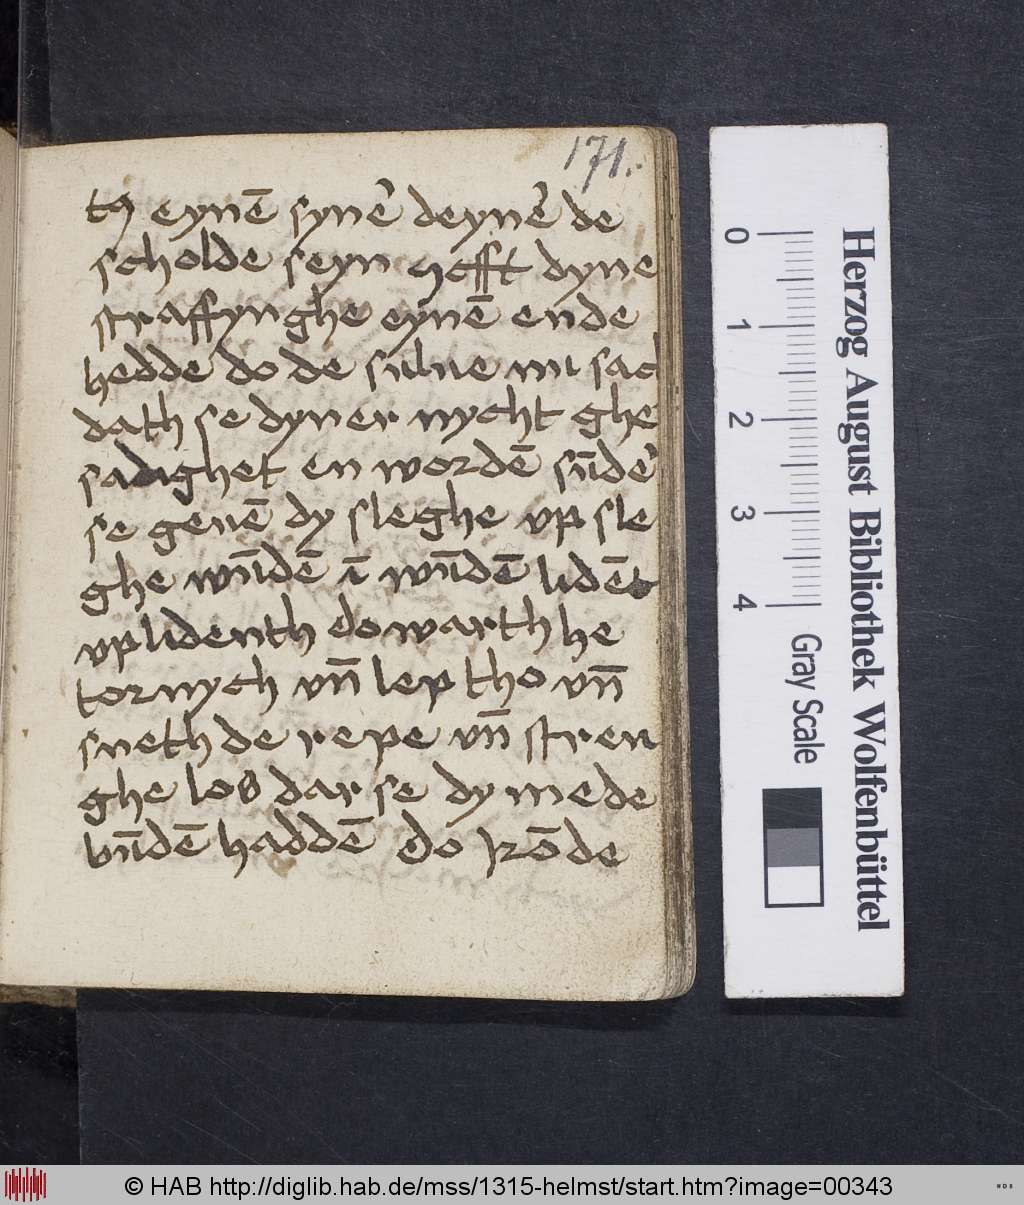 171.
th eynē synē deynē de
scholde seyn yfft dyne
straffynghe eynē ende
hedde do de sulue nu sach
dath se dyner nycht ghe
sadighet en wordē sūde
se geuē dy sleghe vp sle
ghe wūdē ī wūdē lidēt
vp lidenth do warth he
tornych vn̄ lep tho vn̄
sneth de repe vn̄ stren
ghe los dar se dy mede
būdē haddē do kōde
Herzog August Bibliothek Wolfenbüttel
0 1 2 3 4
Gray Scale
© HAB http://diglib.hab.de/mss/1315-helmst/start.htm?image=00343